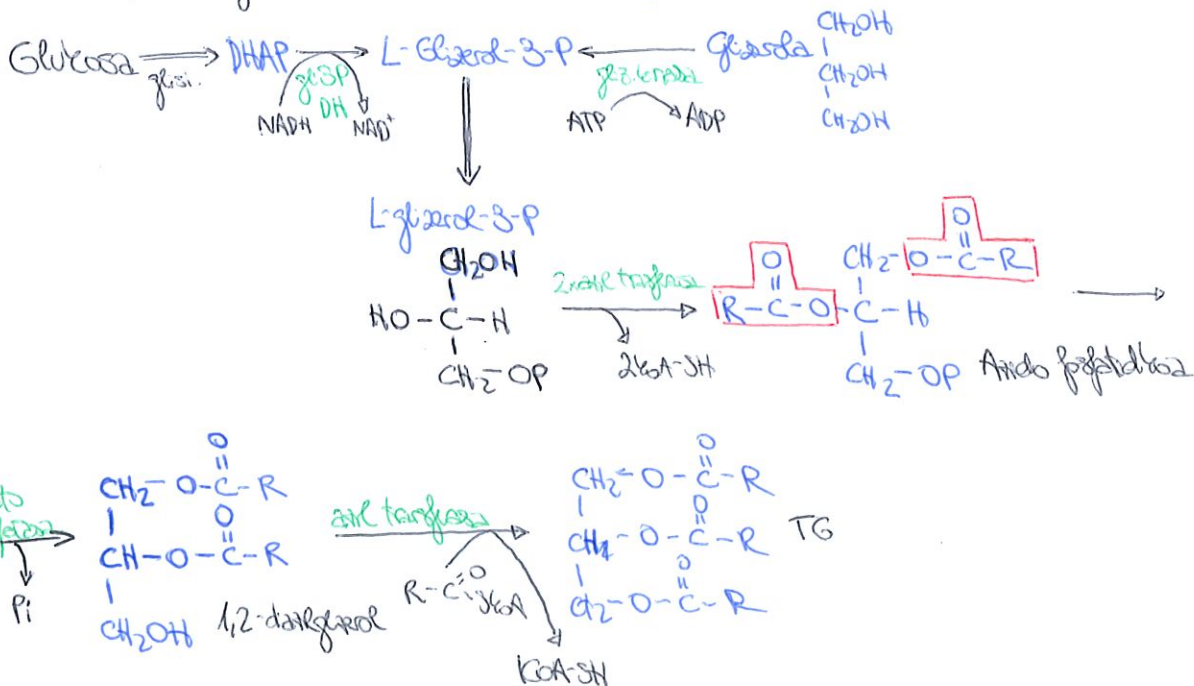 Glukosa glisi. DHAP L-Glizerol-3-P Glizerola CH2OH
CH2OH
CH2OH
gli3P
DH
NADH NAD+
glz.kinasa
ATP ADP
L-glizerol-3-P
CH2OH
HO-C-H
CH2-OP
2x azil transferasa
2 KoA-SH
O
R-C-O-C-H
CH2-O-C-R
O
CH2-OP Azido fosfatidikoa
Pi
O
CH2-O-C-R
O
CH-O-C-R
CH2OH 1,2-diazilglizerol
azil transferasa
R-C=O
SKoA
KoA-SH
O
CH2-O-C-R
O
CH2-O-C-R
O
CH2-O-C-R
TG